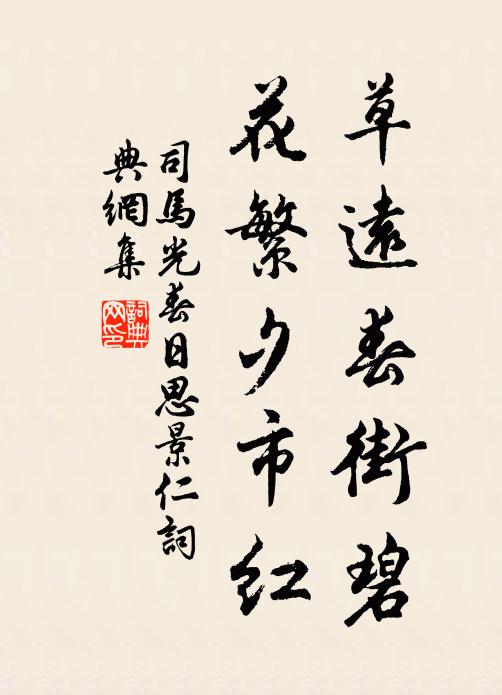 草遠春街碧
花繁夕市紅
司馬光春日思景仁詞
典網集
詞典
网印